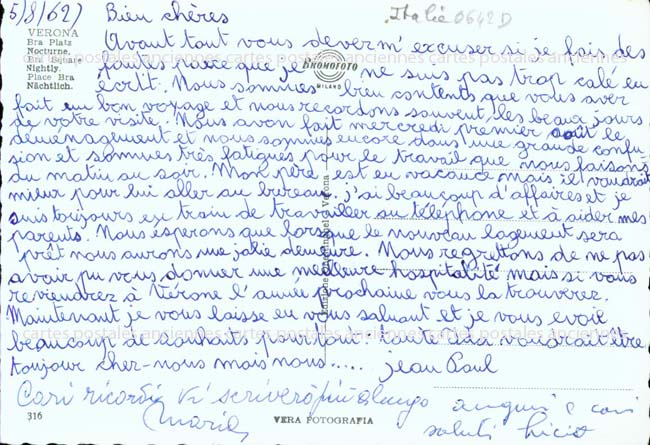 5/8/62) Bien chères
Italie 0642 D
VERONA
Bra Platz
Nocturne.
Bra Square
Nightly.
Place Bra
Nächtlich.
Avant tout vous deverm' excuser si je fais des
fautes parce que je ne suis pas trop calé eu
BROMOFOTO
MILANO
écrit. Nous sommes bieu contents que vous aver
fait eu bon voyage et nous recordons souvent les beaux jours
de votre visite. Nous avon fait mercredi premier août le
déménagement et nous sommes encore dans une grande confu
sion et sommes très fatigués pour le travail que nous faisons
du matin au soir. Mon père est eu vacauce mais il voudrait
mieux pour lui aller au bureau. j'ai beaucoup d'affaires et je
suis toujours eu train de travailler au téléphone et à aider mes
parents. Nous esperons que lorsque le nouveau logement sera
prêt nous aurons une jolie demeure. Nous regrettons de ne pas
avoir pu vous donner une meilleure hospitalité mais si vous
reviendrez à Vérone l'année prochaine vous la trouverez.
Maintenant je vous laisse eu vous saluant et je vous evoie
beaucoup de souhaits pour tout. vaudrait être
toujour cher-nous mais nous..... jean Paul
Cari ricordi Vi scriverò più a lungo
Maria
auguri e cari
saluti Licio
316
VERA FOTOGRAFIA
cartes postales anciennes cartes postales anciennes
cartes postales anciennes cartes postales anciennes